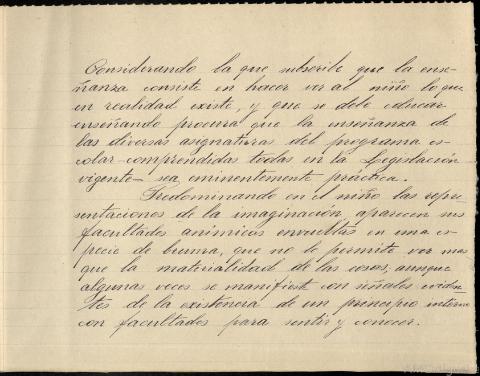 Considerando la que subscribe que la ense-
ñanza consiste en hacer ver al niño lo que
en realidad existe, y que se debe educar
enseñando procura que la enseñanza de
las diversas asignaturas del programa es-
colar-comprendidas todas en la Legislación
vigente- sea eminentemente práctica.
Predominando en el niño las repre-
sentaciones de la imaginación, aparecen sus
facultades anímicas envueltas en una es-
pecie de bruma, que no le permite ver mas
que la materialidad de las cosas, aunque
algunas veces se manifieste con señales eviden-
tes de la existencia de un principio interno
con facultades para sentir y conocer.